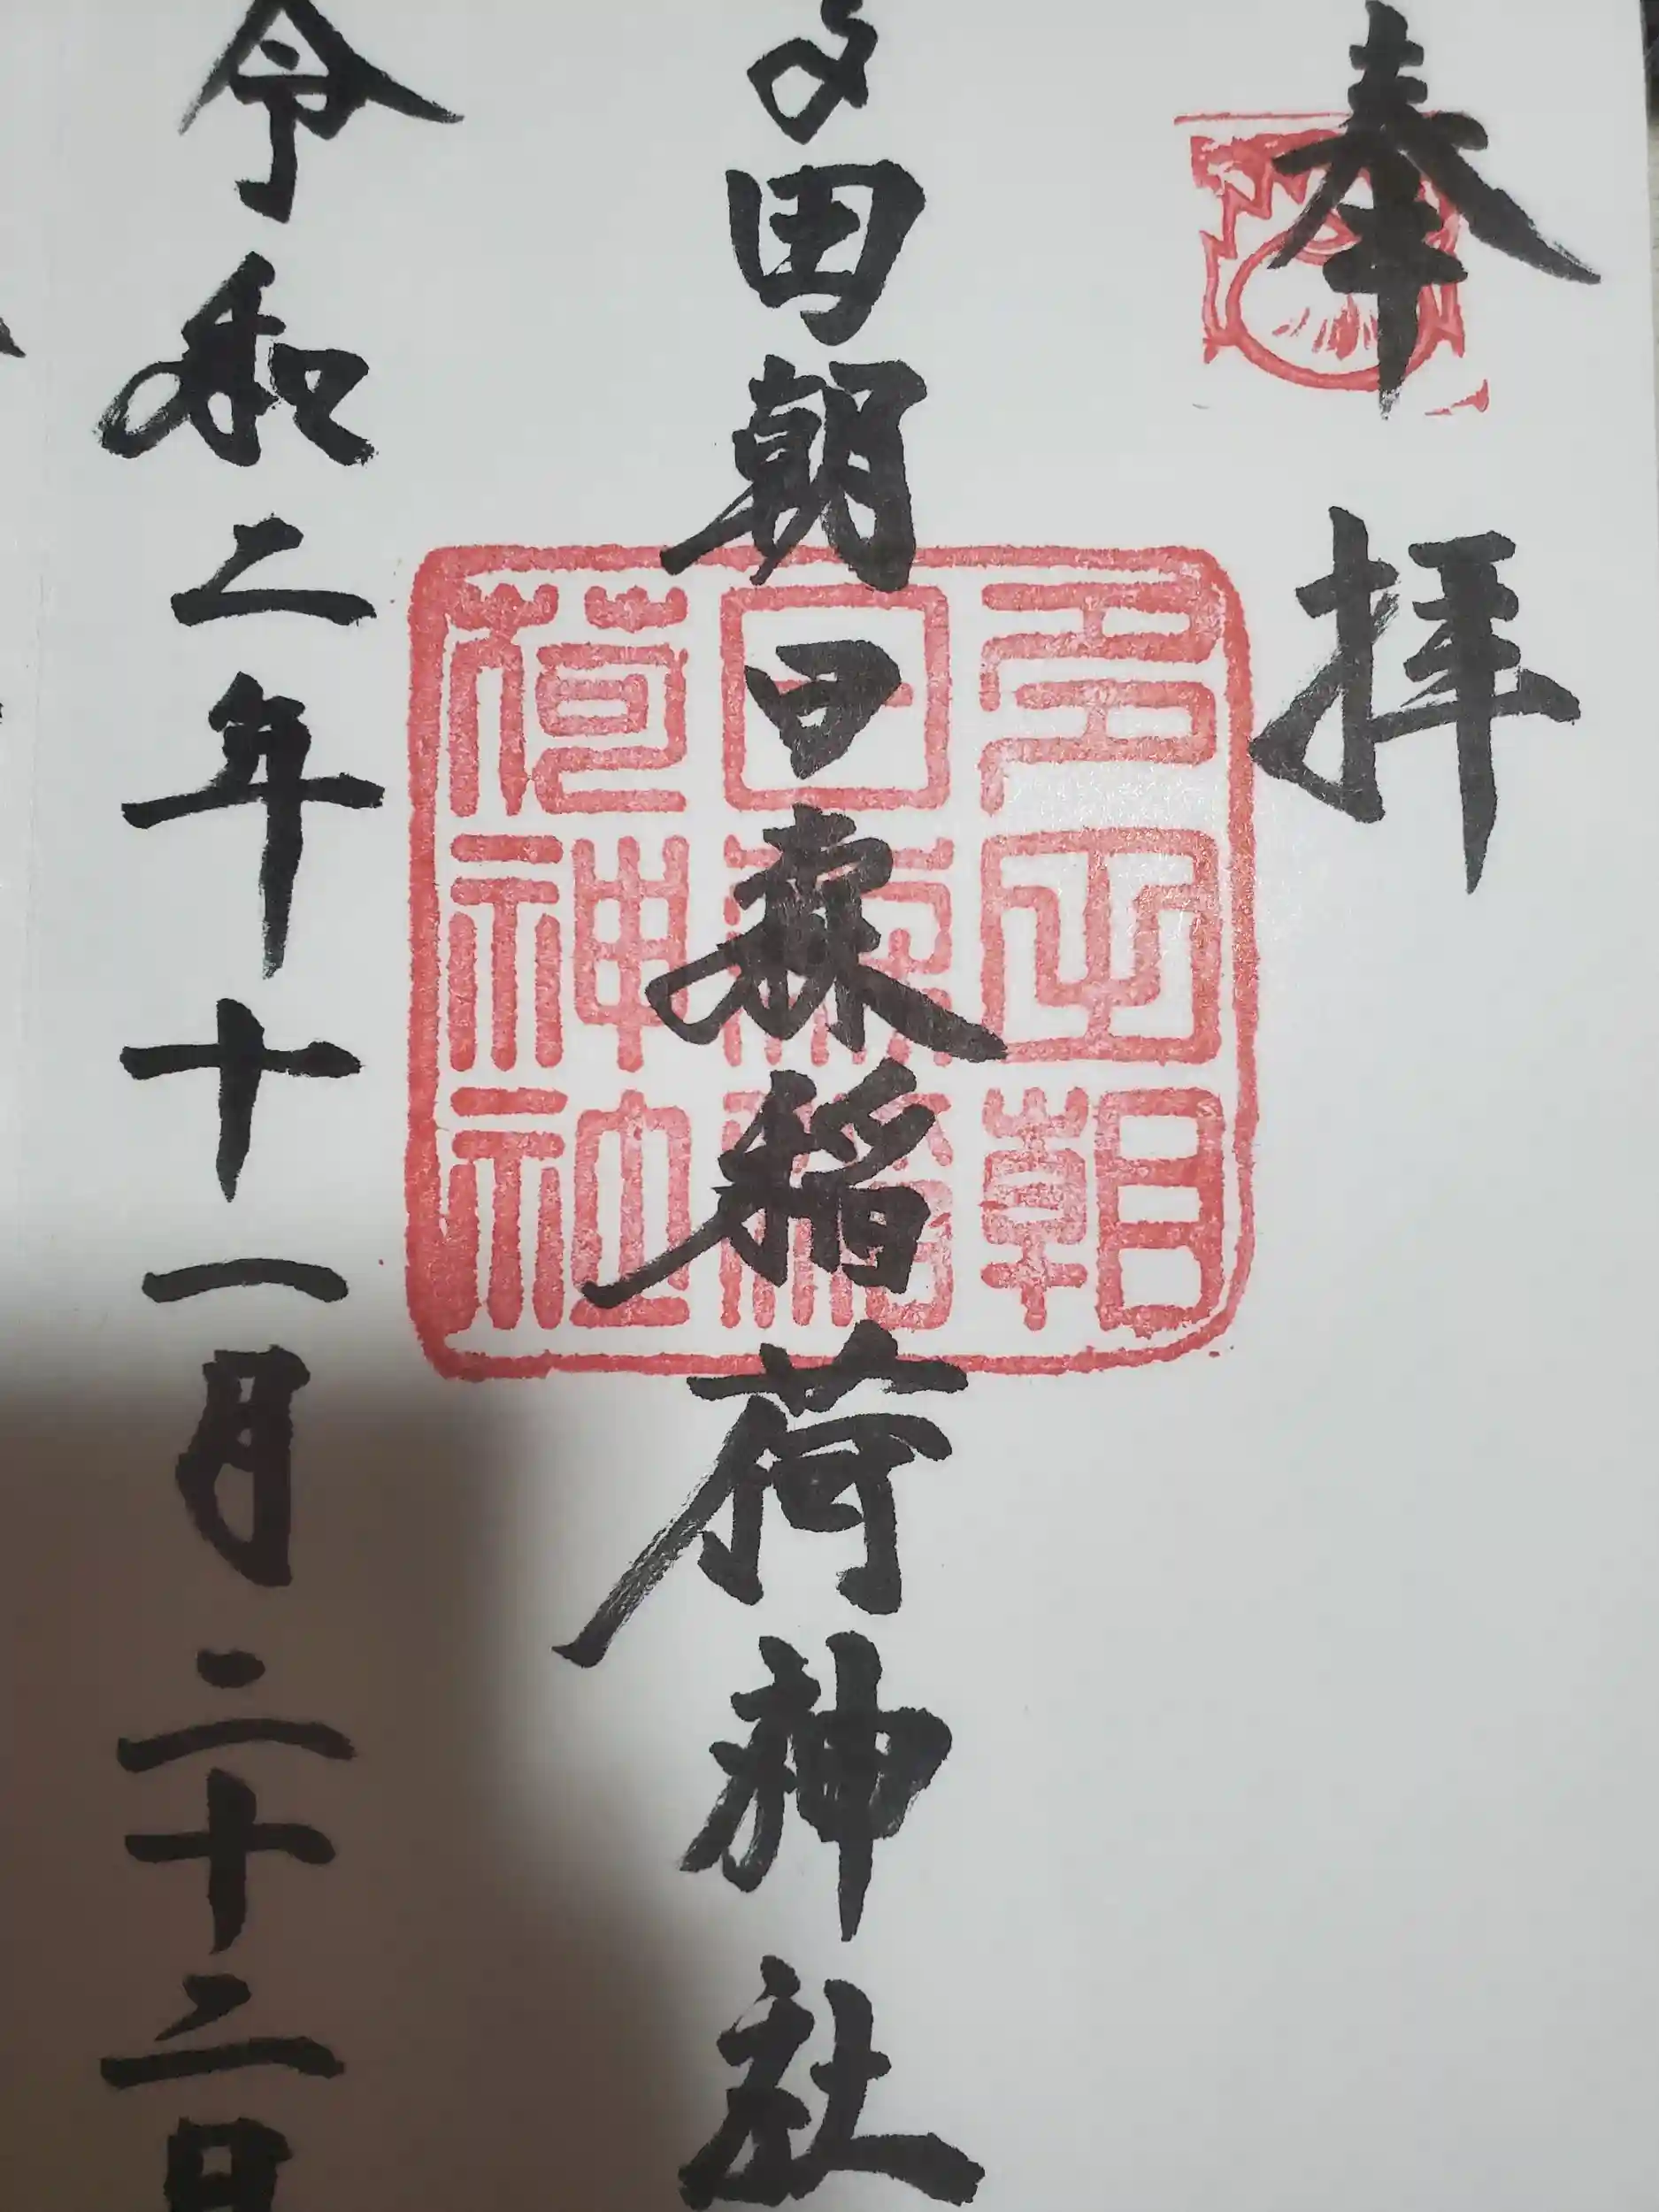 奉拝
多田朝日森稲荷神社
多田朝日森稲荷神社
令和二年十一月二十二日